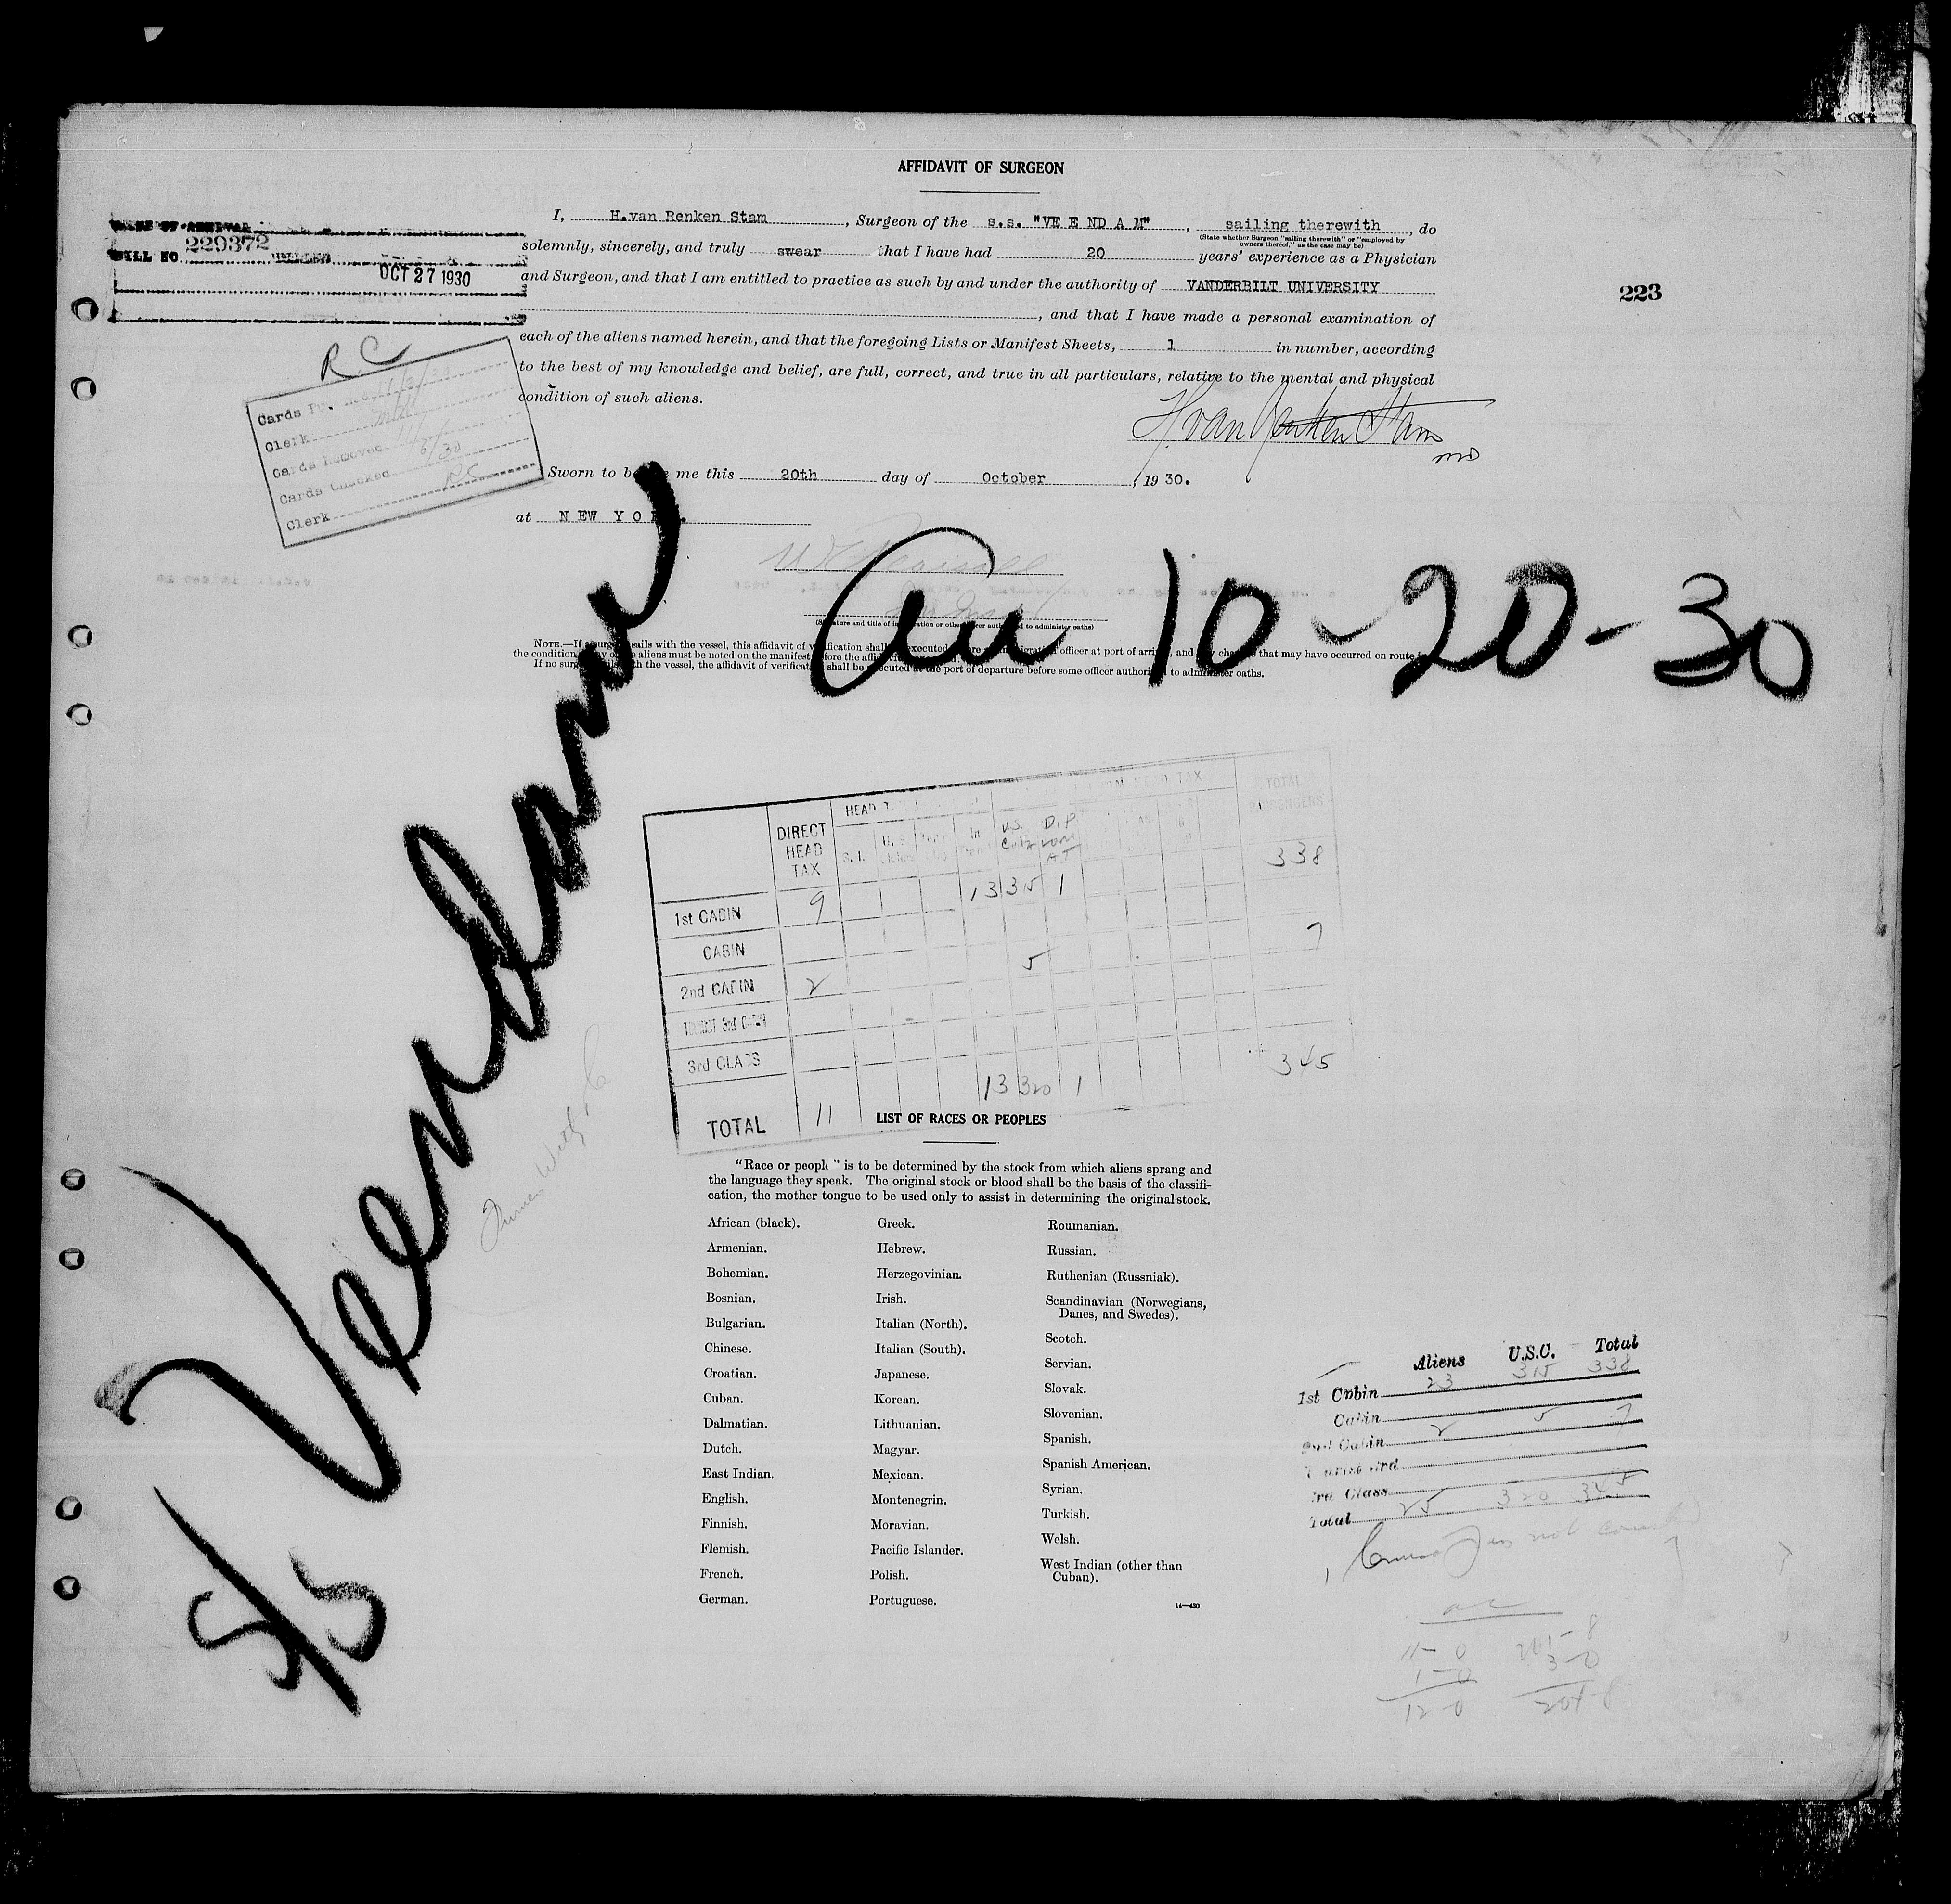 AFFIDAVIT OF SURGEON
I, H.van Renken Stam, Surgeon of the s.s. "VEENDAM", sailing therewith, do
(State whether Surgeon "sailing therewith" or "employed by
owners thereof," as the case may be)
solemnly, sincerely, and truly swear that I have had 20 years' experience as a Physician
and Surgeon, and that I am entitled to practice as such by and under the authority of VANDERBILT UNIVERSITY
, and that I have made a personal examination of
each of the aliens named herein, and that the foregoing Lists or Manifest Sheets, 1 in number, according
to the best of my knowledge and belief, are full, correct, and true in all particulars, relative to the mental and physical
condition of such aliens.
BILL NO. 229372
OCT 27 1930
223
RC
Cards
Clerk
Cards Removed
Cards Checked
Clerk
H van Renken Stam
MD
Sworn to before me this 20th day of October, 1930.
at NEW YORK.
(Signature and title of immigration or other officer authorized to administer oaths)
NOTE.—If a surgeon sails with the vessel, this affidavit of verification shall be executed before the immigration officer at port of arrival and any changes that may have occurred on route
the condition of any of the aliens must be noted on the manifest before the affidavit
If no surgeon sails with the vessel, the affidavit of verification shall be executed at the port of departure before some officer authorized to administer oaths.
S/S Veendam
Arr 10-20-30
DIRECT HEAD TAX
HEAD TAX
U.S. Citz
DIPLOMAT
TOTAL PASSENGERS
1st CABIN 9 13 315 1 338
CABIN
2nd CABIN 2 5 7
TOURIST 3rd CABIN
3rd CLASS
TOTAL 11 13 320 1 345
LIST OF RACES OR PEOPLES
"Race or people" is to be determined by the stock from which aliens sprang and
the language they speak. The original stock or blood shall be the basis of the classifi-
cation, the mother tongue to be used only to assist in determining the original stock.
African (black).
Armenian.
Bohemian.
Bosnian.
Bulgarian.
Chinese.
Croatian.
Cuban.
Dalmatian.
Dutch.
East Indian.
English.
Finnish.
Flemish.
French.
German.
Greek.
Hebrew.
Herzegovinian.
Irish.
Italian (North).
Italian (South).
Japanese.
Korean.
Lithuanian.
Magyar.
Mexican.
Montenegrin.
Moravian.
Pacific Islander.
Polish.
Portuguese.
Roumanian.
Russian.
Ruthenian (Russniak).
Scandinavian (Norwegians,
Danes, and Swedes).
Scotch.
Servian.
Slovak.
Slovenian.
Spanish.
Spanish American.
Syrian.
Turkish.
Welsh.
West Indian (other than
Cuban).
14—430
Aliens U.S.C. Total
1st Cabin 23 315 338
Cabin
2nd Cabin 2 5 7
Tourist 3rd
3rd Class
Total 25 320 345
not counted
11-0
1-0
12-0
201-8
3-0
204-8